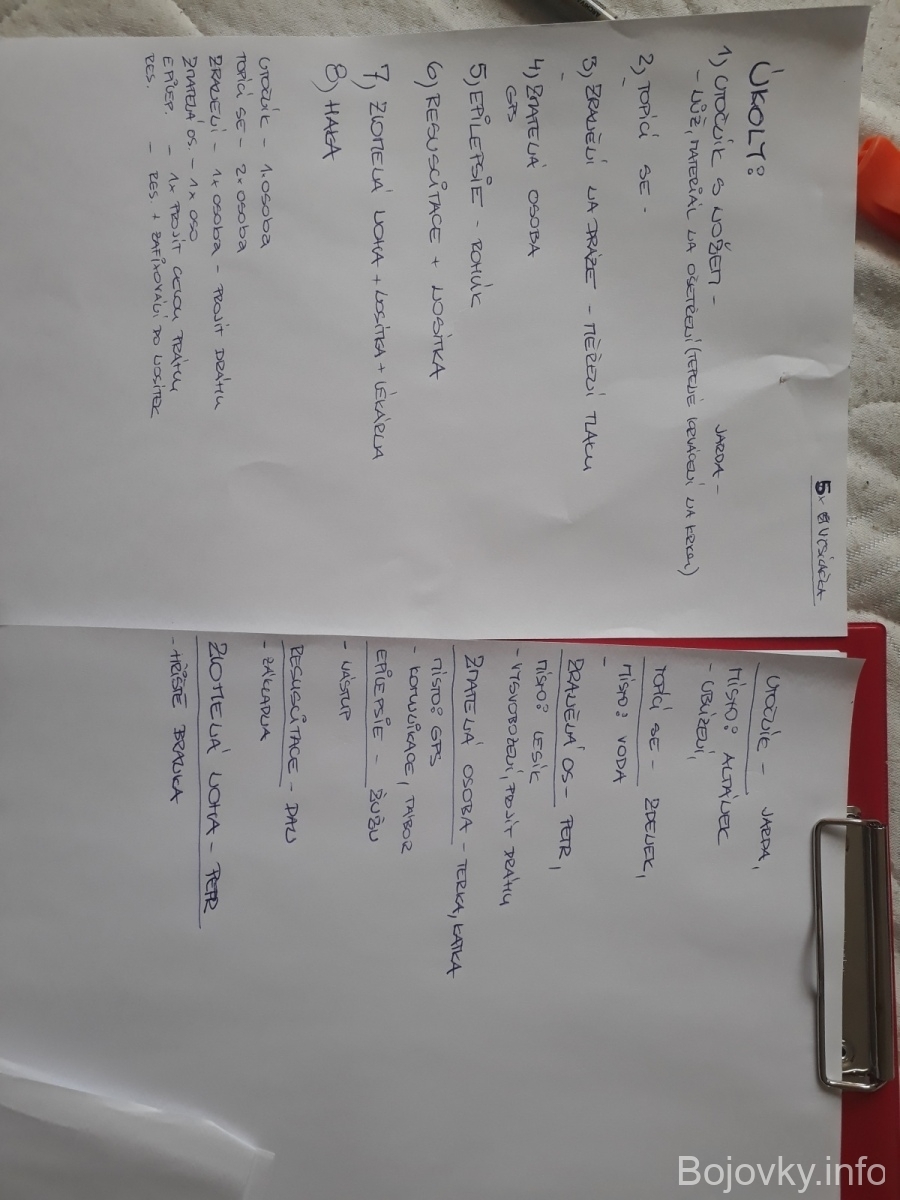 5x VYSÍLAČKA
ÚKOLY:
1) ÚTOČNÍK S NOŽEM - JARDA -
- NŮŽ, MATERIÁL NA OŠETŘENÍ (TEPENÉ KRVÁCENÍ NA KRKU)
2) TOPÍCÍ SE -
-
3) ZRANĚNÍ NA DRÁZE - MĚŘENÍ TLAKU
-
4) ZMATENÁ OSOBA
GPS
5) EPILEPSIE - POHÚK
6) RESUSCITACE + NOSÍTKA
7) ZLOMENÁ NOHA + NOSÍTKA + LÉKÁRNA
8) HAKA
ÚTOČNÍK - 1. OSOBA
TOPÍCÍ SE - 2x OSOBA
ZRANĚNÍ - 1x OSOBA - PROJÍT DRÁHU
ZMATENÁ OS. - 1x OSO
EPILEP. - 1x PROJÍT CELOU DRÁHU
RES. - RES. + ZAFIXOVÁNÍ DO NOSÍTEK
ÚTOČNÍK - JARDA,
MÍSTO: ALTÁNEK
- UBLÍŽENÍ,
TOPÍCÍ SE - ZDENEK,
MÍSTO: VODA
-
ZRANĚNÁ OS - PETR,
MÍSTO: LESÍK
- VYSVOBOZENÍ, PROJÍT DRÁHU
ZMATENÁ OSOBA - TERKA, KATKA
MÍSTO: GPS
- KOMUNIKACE, TÁBOR
EPILEPSIE - ŽUŽU
- NÁSTUP
RESUSCITACE - DAN
- ZÁKLADNA
ZLOMENÁ NOHA - PETR
- HŘIŠTĚ BRANKA
Bojovky.info